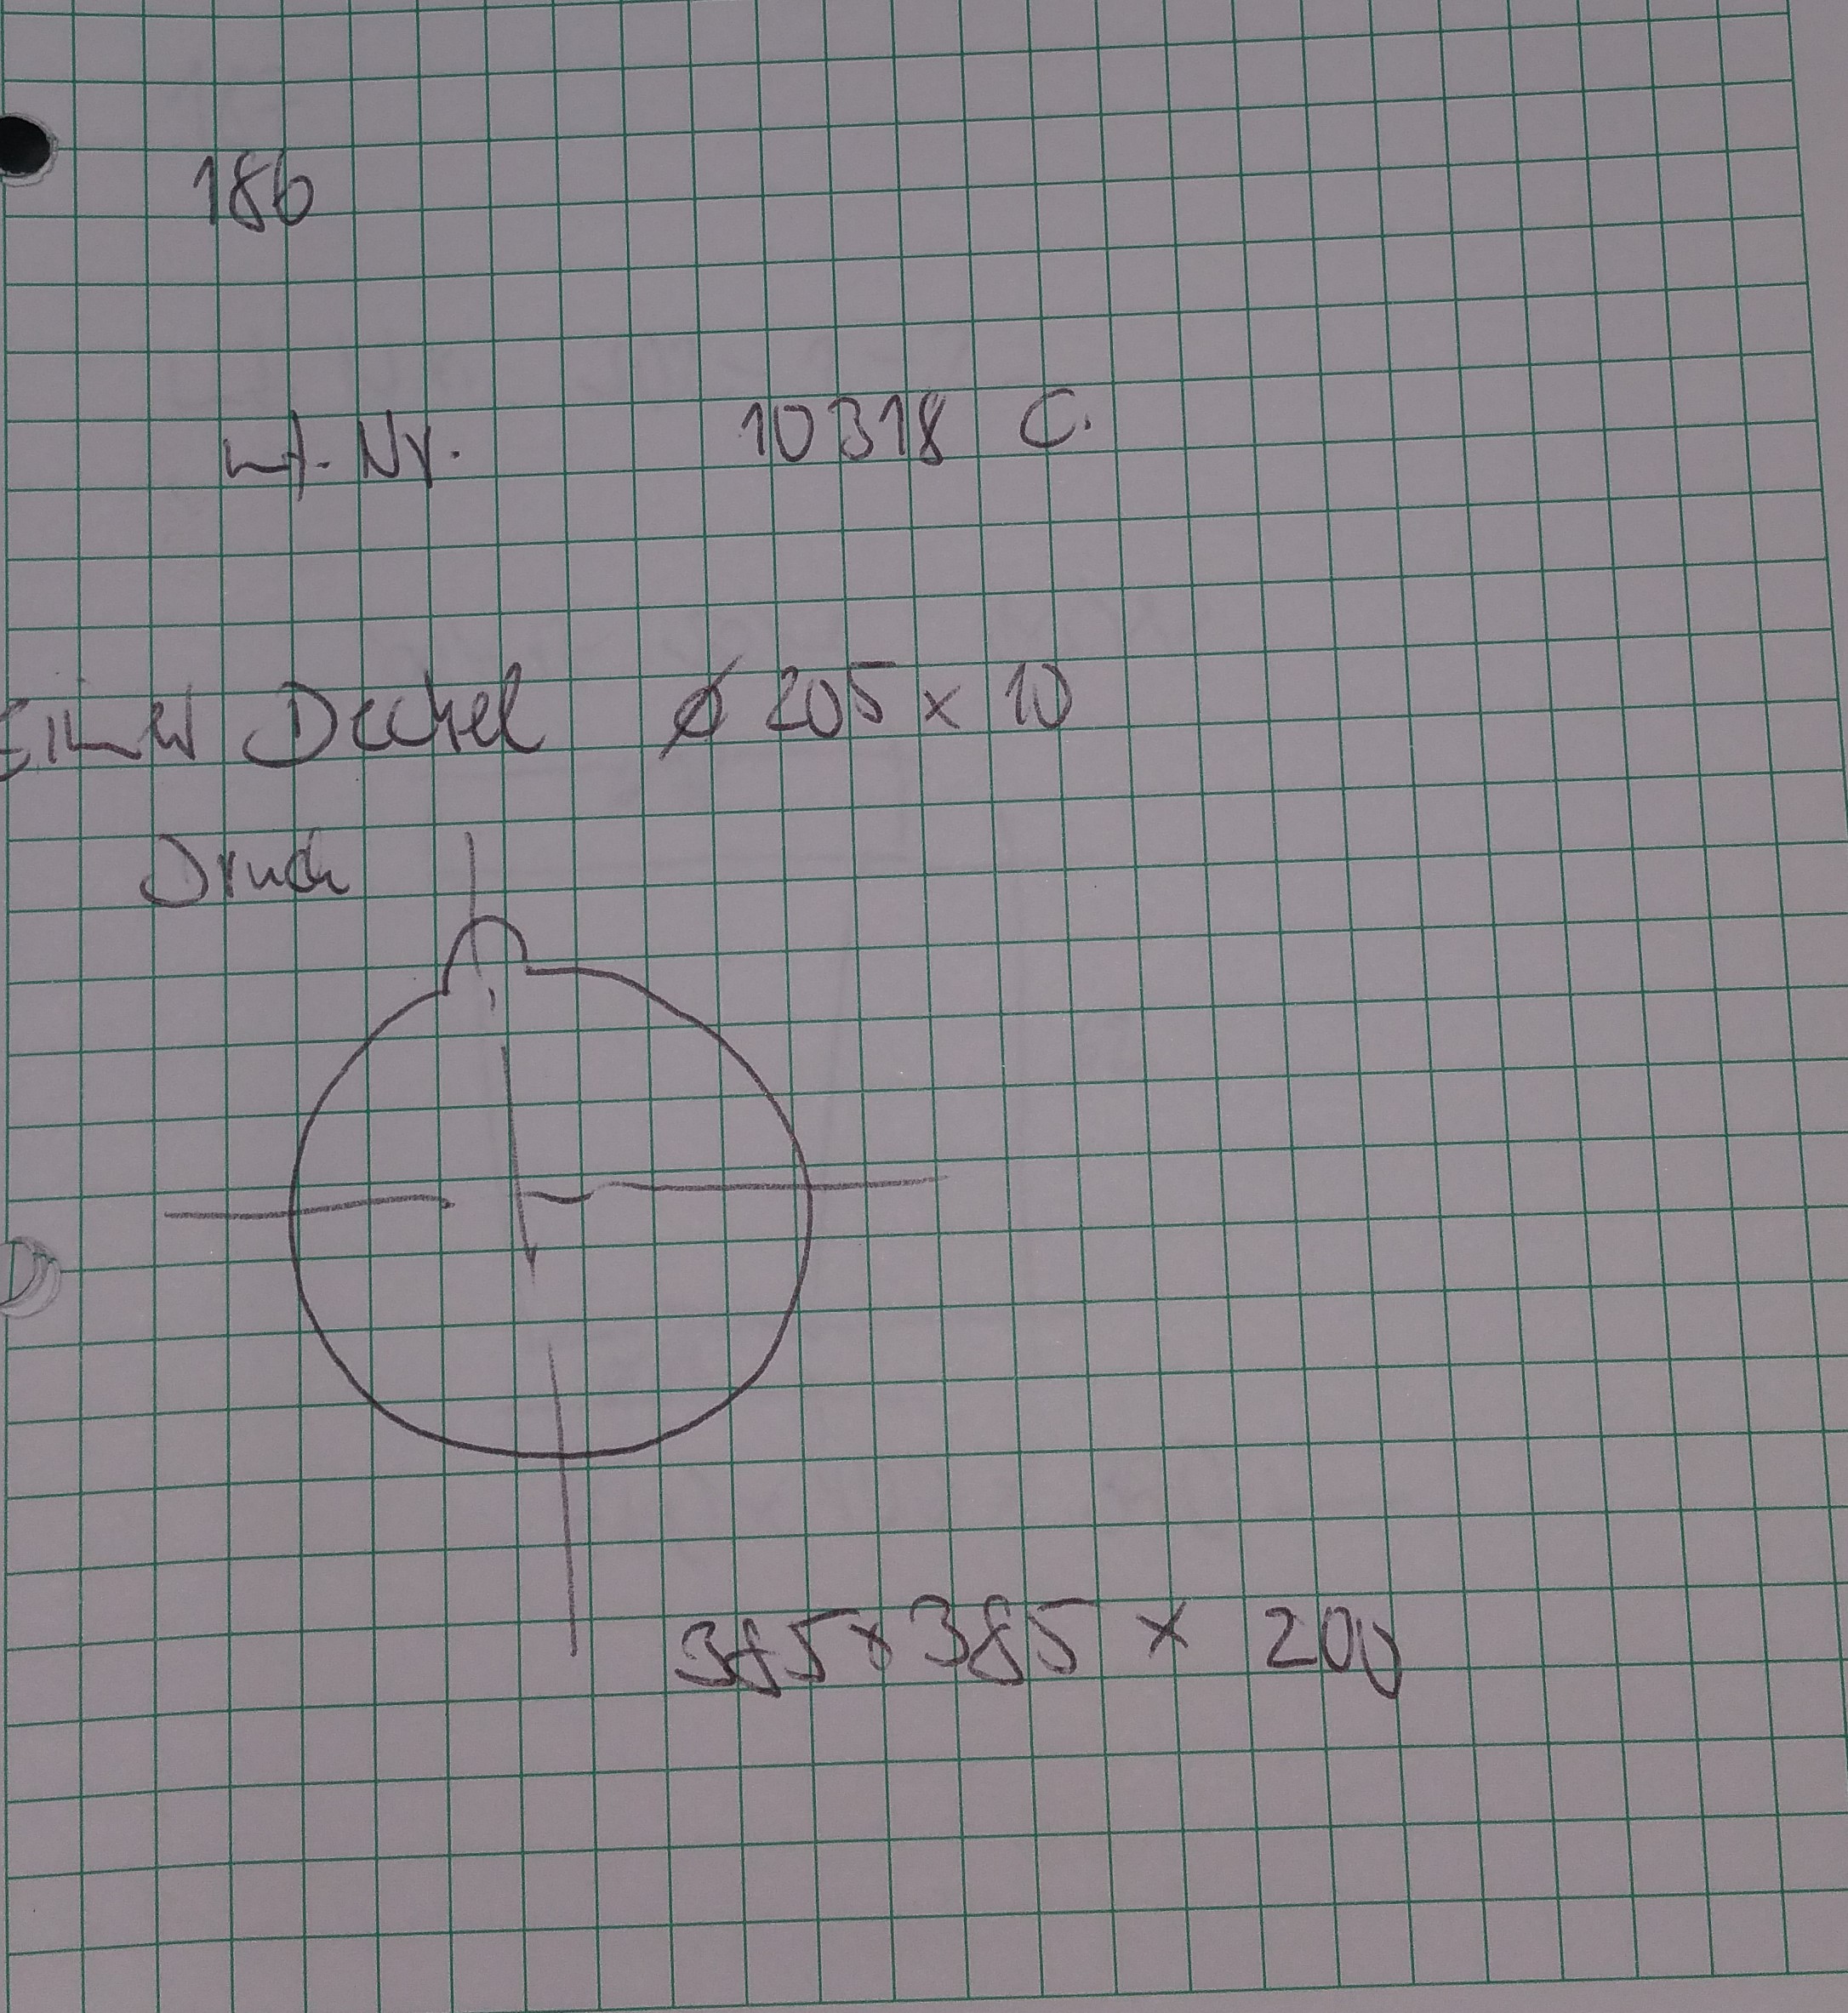 186
Wf. Nr. 10318 C.
Eimer Deckel ⌀ 205 x 10
Druck
385 x 385 x 200